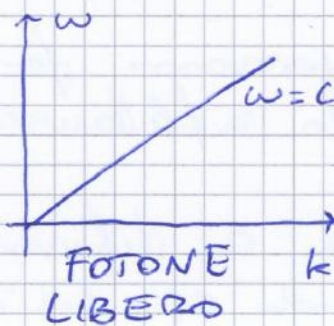 ω
ω = C
FOTONE
k
LIBERO